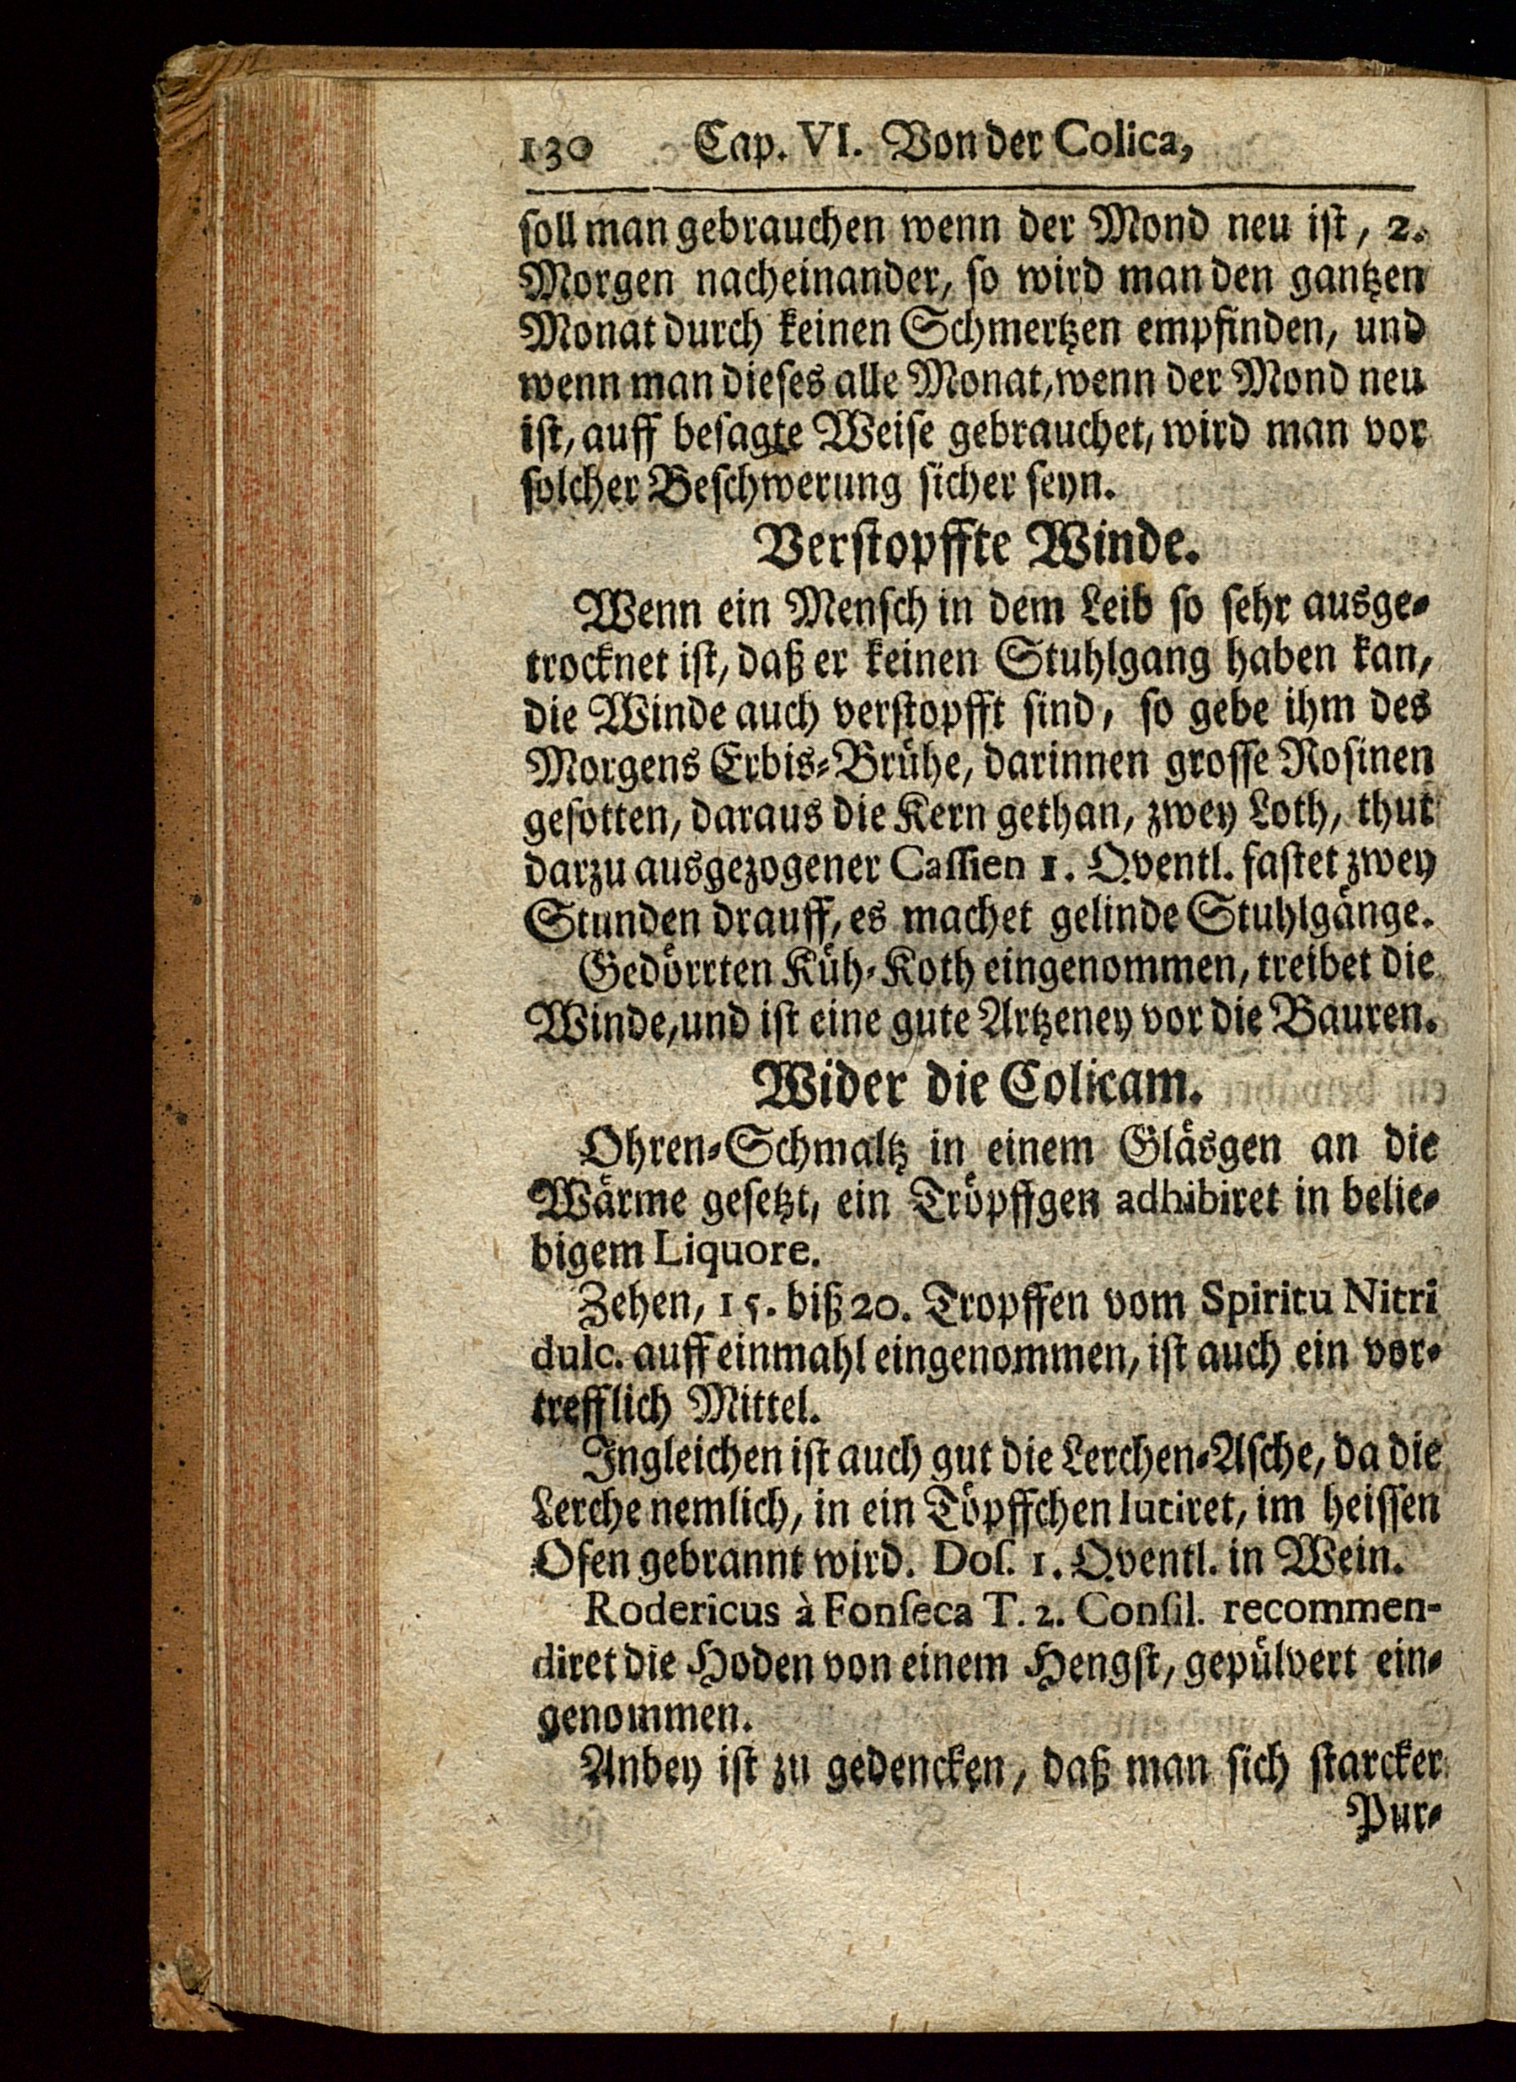 130 Cap. VI. Von der Colica,
soll man gebrauchen wenn der Mond neu ist, 2.
Morgen nacheinander, so wird man den gantzen
Monat durch keinen Schmertzen empfinden, und
wenn man dieses alle Monat, wenn der Mond neu
ist, auff besagte Weise gebrauchet, wird man vor
solcher Beschwerung sicher seyn.
Verstopffte Winde.
Wenn ein Mensch in dem Leib so sehr ausge-
trocknet ist, daß er keinen Stuhlgang haben kan,
die Winde auch verstopfft sind, so gebe ihm des
Morgens Erbis-Brühe, darinnen grosse Rosinen
gesotten, daraus die Kern gethan, zwey Loth, thut
darzu ausgezogener Cassien 1. Qventl. fastet zwey
Stunden drauff, es machet gelinde Stuhlgänge.
Gedörrten Küh-Koth eingenommen, treibet die
Winde, und ist eine gute Artzeney vor die Bauren.
Wider die Colicam.
Ohren-Schmaltz in einem Gläsgen an die
Wärme gesetzt, ein Tröpffgen adhibiret in belie-
bigem Liquore.
Zehen, 15. biß 20. Tropffen vom Spiritu Nitri
dulc. auff einmahl eingenommen, ist auch ein vor-
trefflich Mittel.
Ingleichen ist auch gut die Lerchen-Asche, da die
Lerche nemlich, in ein Töpffchen lutiret, im heissen
Ofen gebrannt wird. Dos. 1. Qventl. in Wein.
Rodericus à Fonseca T. 2. Consil. recommen-
diret die Hoden von einem Hengst, gepülvert ein-
genommen.
Anbey ist zu gedencken, daß man sich starcker
Pur-